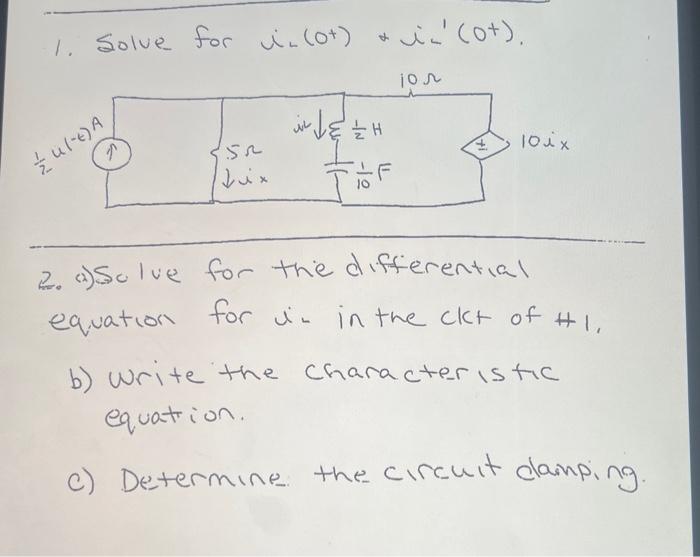 1. Solve for iL(0+) & iL'(0+).
10Ω
½u(-t)A
iL ½ H
5Ω
ix
1/10 F
±
10ix
2. a) Solve for the differential
equation for iL in the ckt of #1.
b) Write the characteristic
equation.
c) Determine the circuit damping.